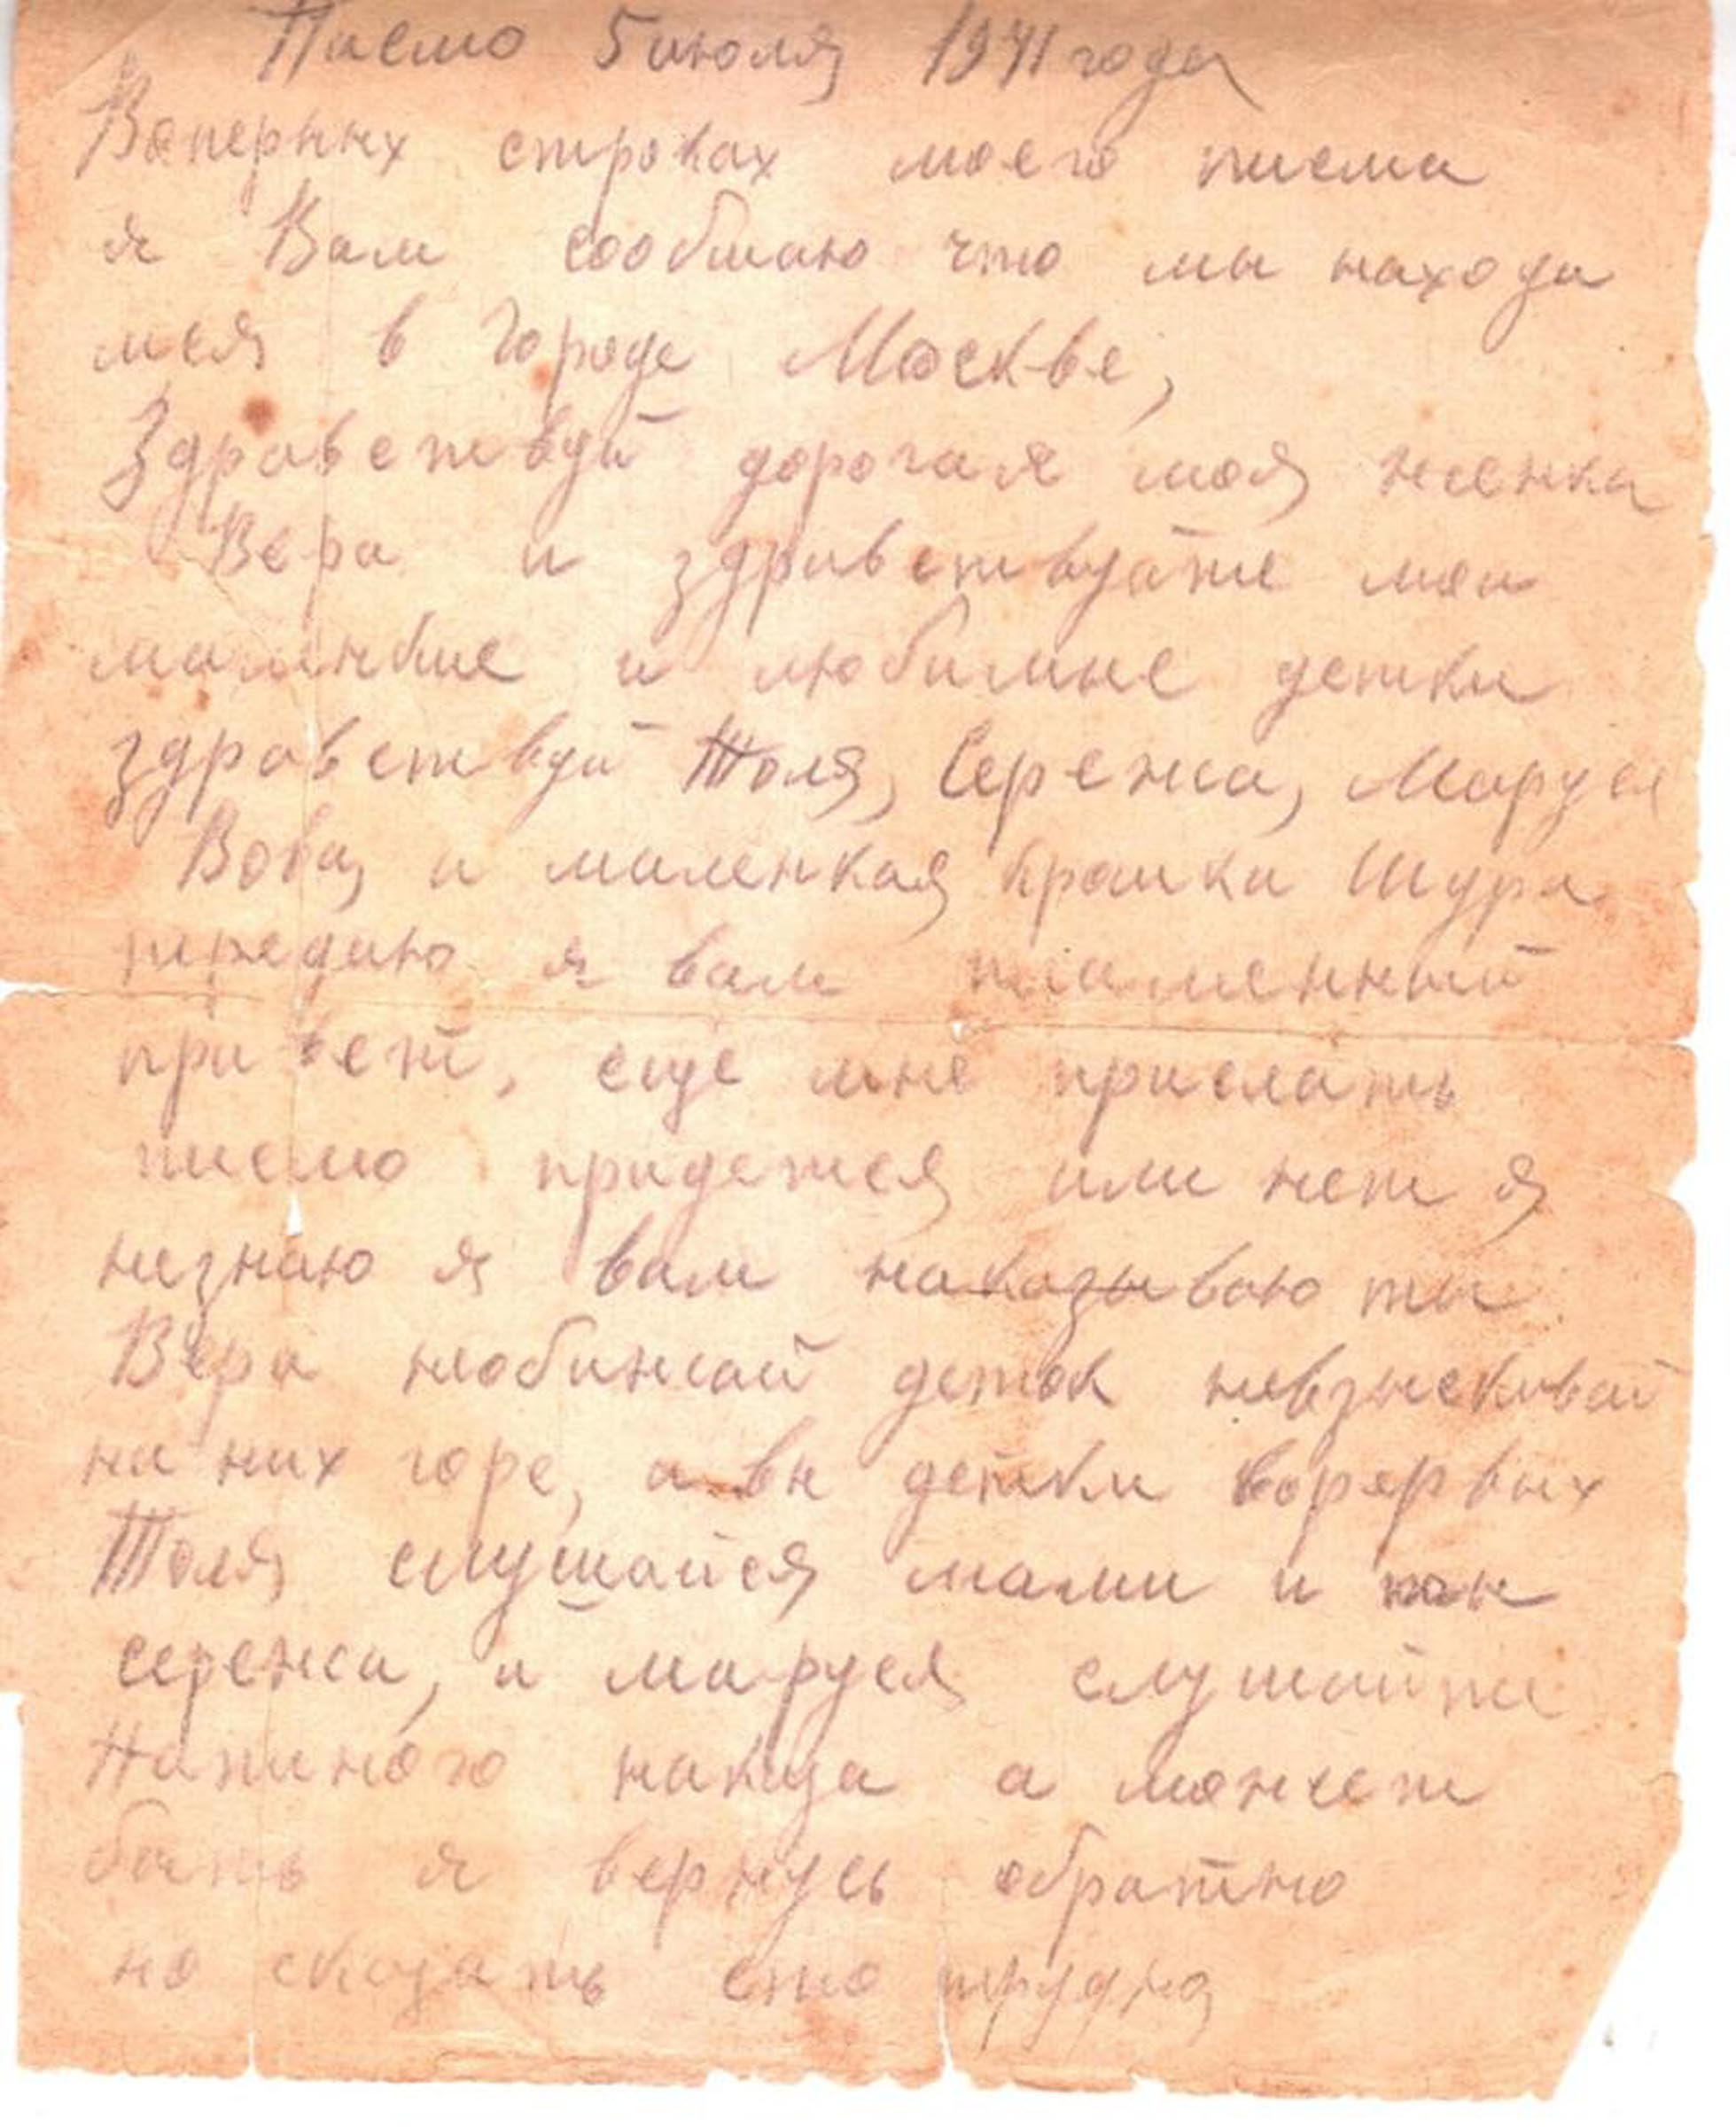 Писмо 5 июля 1941 года
Воперных строках моего писма
я Вам сообшаю что мы находи
мся в городе Москве,
Здравствуй дорогая моя женка
Вера и здравствуйте мои
малинкие и любимые детки
здравствуй Толя, Сережа, Маруся
Вова, и маленкая крошка Шура
передаю я вам пламенный
привет, еще мне прислать
писмо придется или нет я
незнаю я вам наказываю ты
Вера необижай деток невзыскивай
на них горе, а вы детки
Толя слушайся мами и
сережа, и маруся слушайте
Папиного а может
быть я вернусь обратно
но сказать ето трудно